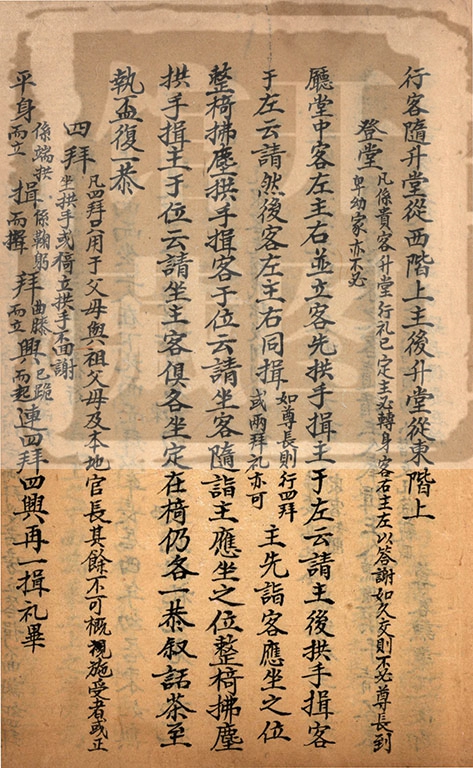 行客隨升堂從西階上主後升堂從東階上
登堂凡係貴客升堂行礼已定主必轉身客右主左以答謝如久交則不必尊長到卑幼家亦不必
廳堂中客左主右並立客先拱手揖主于左云請主後拱手揖客
于左云請然後客左主右同揖如尊長則行四拜或兩拜礼亦可主先詣客應坐之位
整椅拂塵拱手揖客于位云請坐客隨詣主應坐之位整椅拂塵
拱手揖主于位云請坐主客俱各坐定在椅仍各一恭叙話茶至
執盃復一恭
四拜凡四拜只用于父母與祖父母及本地官長其餘不可概視施受者或正坐拱手或椅立拱手不面謝
平身係端拱而立揖係鞠躬而揖拜曲膝而立興已跪而起連四拜四興再一揖礼畢